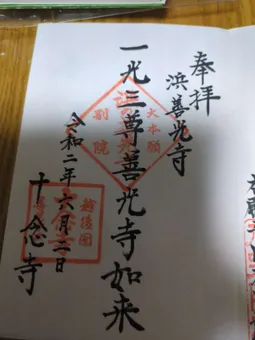 奉拝
浜善光寺
一光三尊善光寺如来
大本願
別院
令和二年六月二日
越後国
十念寺